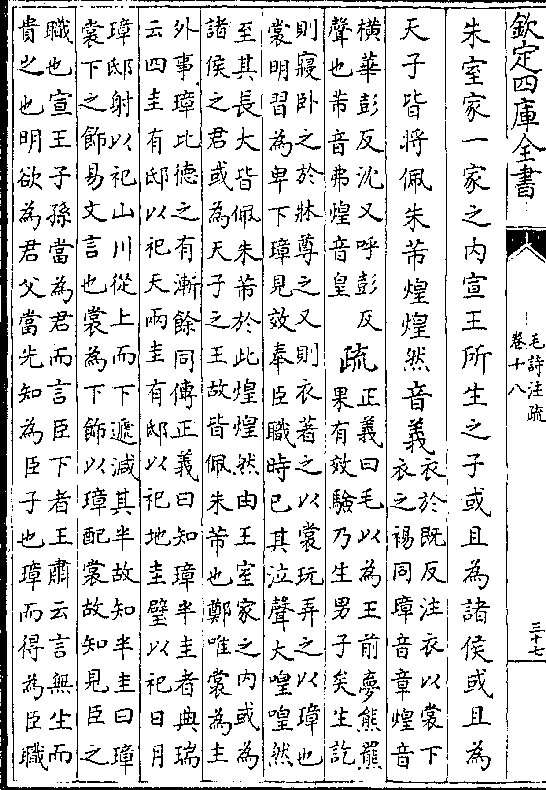 欽定四庫全書
毛詩注疏
卷十八
三十七
朱室家一家之内宣王所生之子或且為諸侯或且為
天子皆將佩朱芾煌煌然音義
衣於既反注衣以裳下
衣之裼同璋音章煌音
横華彭反沈又呼彭反
聲也芾音弗煌音皇
疏
正義曰毛以為王前夢熊羆
果有效驗乃生男子矣生訖
則寢卧之於牀尊之又則衣著之以裳玩弄之以璋也
裳明習為卑下璋見效奉臣職時已其泣聲大喤喤然
至其長大皆佩朱芾於此煌煌然由王室家之内或為
諸侯之君或為天子之王故皆佩朱芾也鄭唯裳為主
外事璋比德之有漸餘同傳正義曰知璋半圭者典瑞
云四圭有邸以祀天兩圭有邸以祀地圭璧以祀日月
璋邸射以祀山川從上而下遞減其半故知半圭曰璋
裳下之飾易文言也裳為下飾以璋配裳故知見臣之
職也宣王子孫當為君而言臣下者王肅云言無生而
貴之也明欲為君父當先知為臣子也璋而得為臣職